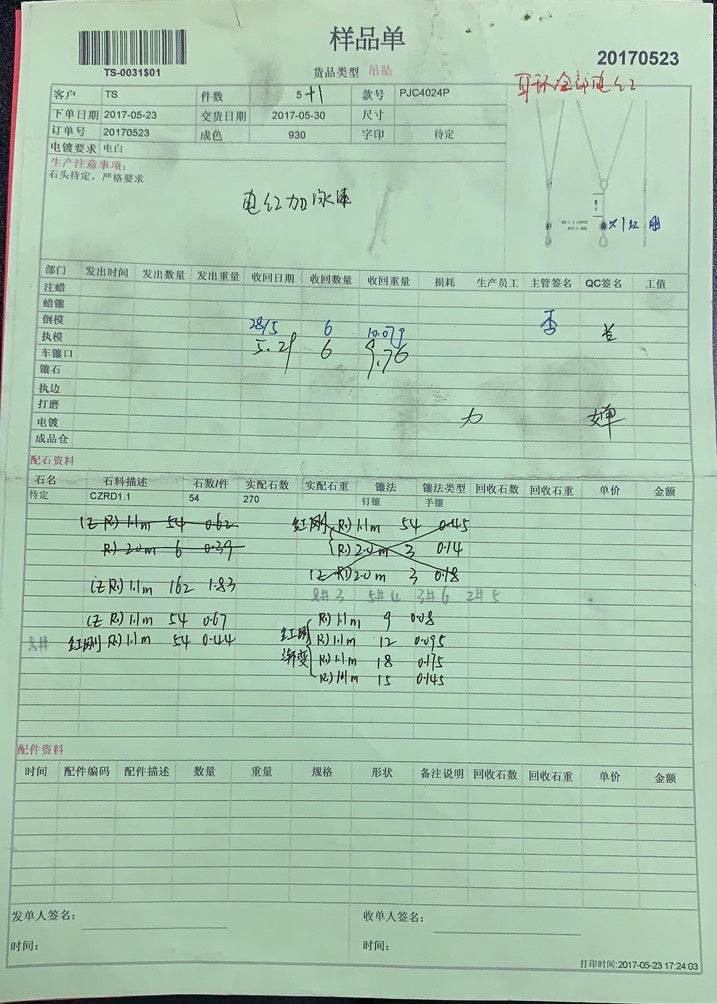 样品单
TS-0031S01
货品类型 吊坠
20170523
耳环全部电红
客户 TS 件数 5+1 款号 PJC4024P
下单日期 2017-05-23 交货日期 2017-05-30 尺寸
订单号 20170523 成色 930 字印 待定
电镀要求 电白
生产注意事项:
石头待定,严格要求
电红加泳漆
部门 发出时间 发出数量 发出重量 收回日期 收回数量 收回重量 损耗 生产员工 主管签名 QC签名 工值
注蜡
蜡镶
倒模 28/5 6 10.07g 李
执模 5.29 6 9.76
车镶口
镶石
执边
打磨
电镀 力 婵
成品仓
配石资料
石名 石料描述 石数/件 实配石数 实配石重 镶法 镶法类型 回收石数 回收石重 单价 金额
待定 CZRD1.1 54 270 钉镶 手镶
CZ RD 1.1m 54 0.62 红刚 RD 1.1m 54 0.45
RD 2.0m 6 0.39 RD 2.0m 3 0.14
CZ RD 2.0m 3 0.18
CZ RD 1.1m 162 1.83
8# 3 5# 4 3# 6 2# 5
CZ RD 1.1m 54 0.67 红刚 RD 1.1m 9 0.08
8# 红刚 RD 1.1m 54 0.44 RD 1.1m 12 0.095
渐变 RD 1.1m 18 0.175
RD 1.1m 15 0.145
配件资料
时间 配件编码 配件描述 数量 重量 规格 形状 备注说明 回收石数 回收石重 单价 金额
发单人签名: 收单人签名:
时间: 时间:
打印时间:2017-05-23 17:24:03